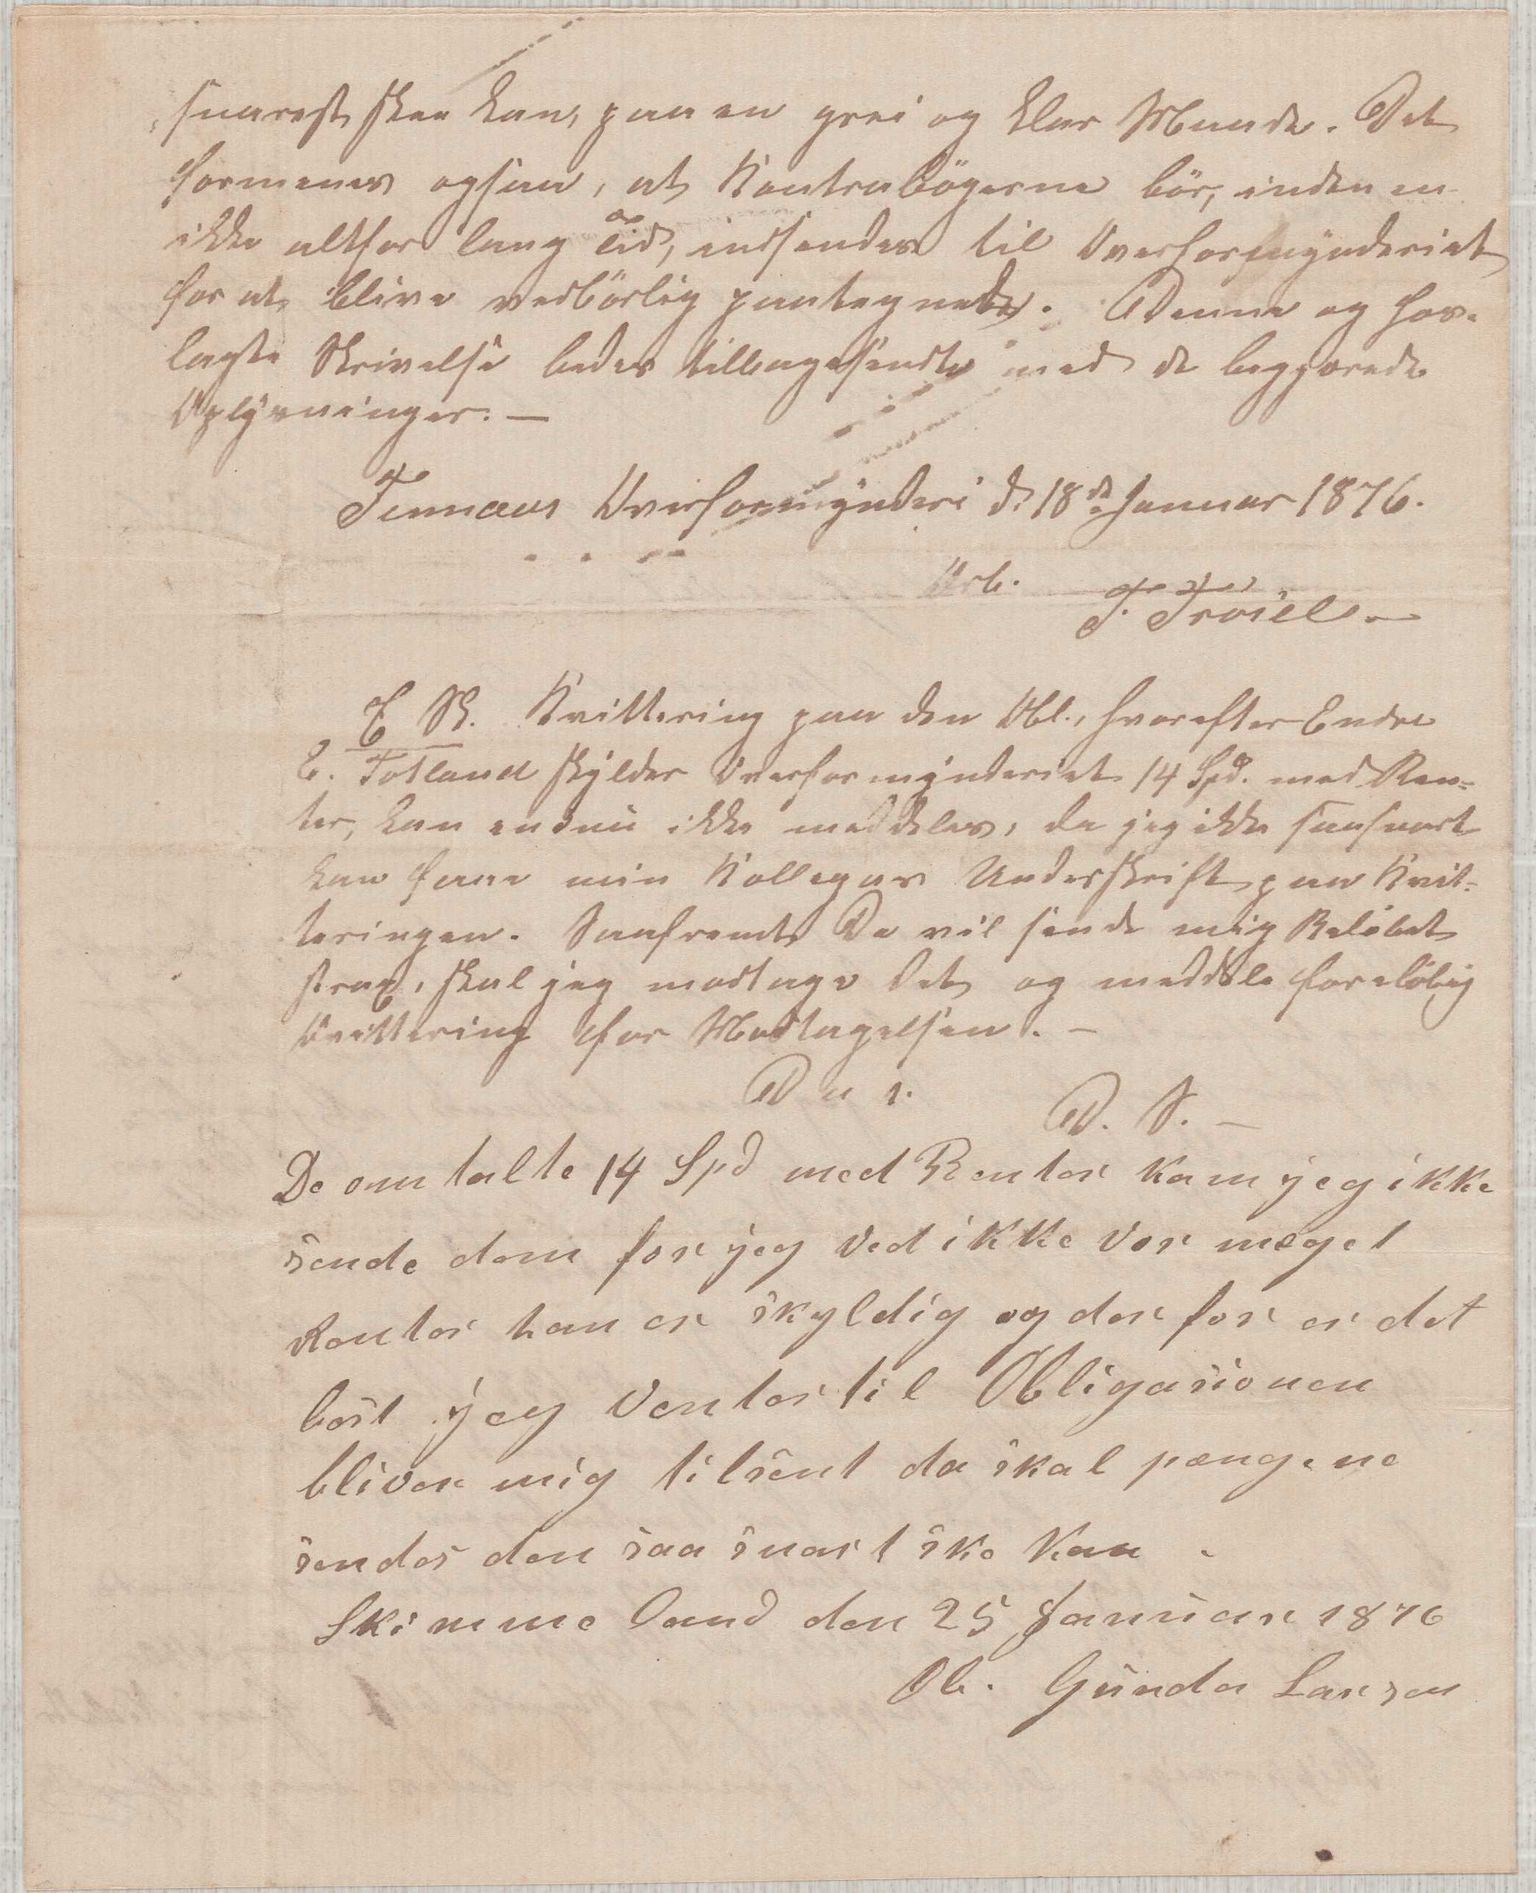 snarest skee kan, paa en grei og klar Maade. Det
formenes ogsaa, at Kontrabøgerne bør, inden en
ikke altfor lang Tid, indsendes til Overformynderiet
for at blive vedbørlig paategnede. Denne og for-
lagte Skrivelse bedes tilbagesendt med de begjærede
Oplysninger. —
Tennæs Overformynderi d. 18de Januar 1876.
Arb. T. Tröiel. —
E. Sk. Kvittering paa den Obl., hvorefter Endre
E. Totland skylder Overformynderiet 14 Spd. med Ren-
ter, kan endnu ikke meddeles, da jeg ikke saasnart
kan faae min Kollegas Underskrift paa Kvit-
teringen. Saafremt De vil sende mig Beløbet
strax, skal jeg modtage det og meddele foreløbig
Kvittering for Modtagelsen. —
D. S. —
De omtalte 14 Spd med Renter kam jeg ikke
sende dem for jeg ved ikke vor meget
Renter han er skyldig og der for er det
best jeg venter til Obligasionen
bliver mig tilsent da skal pengene
sendes den saa snart ske kan .
Skimme land den 25 Januar 1876
Ob. Gunder Larsen